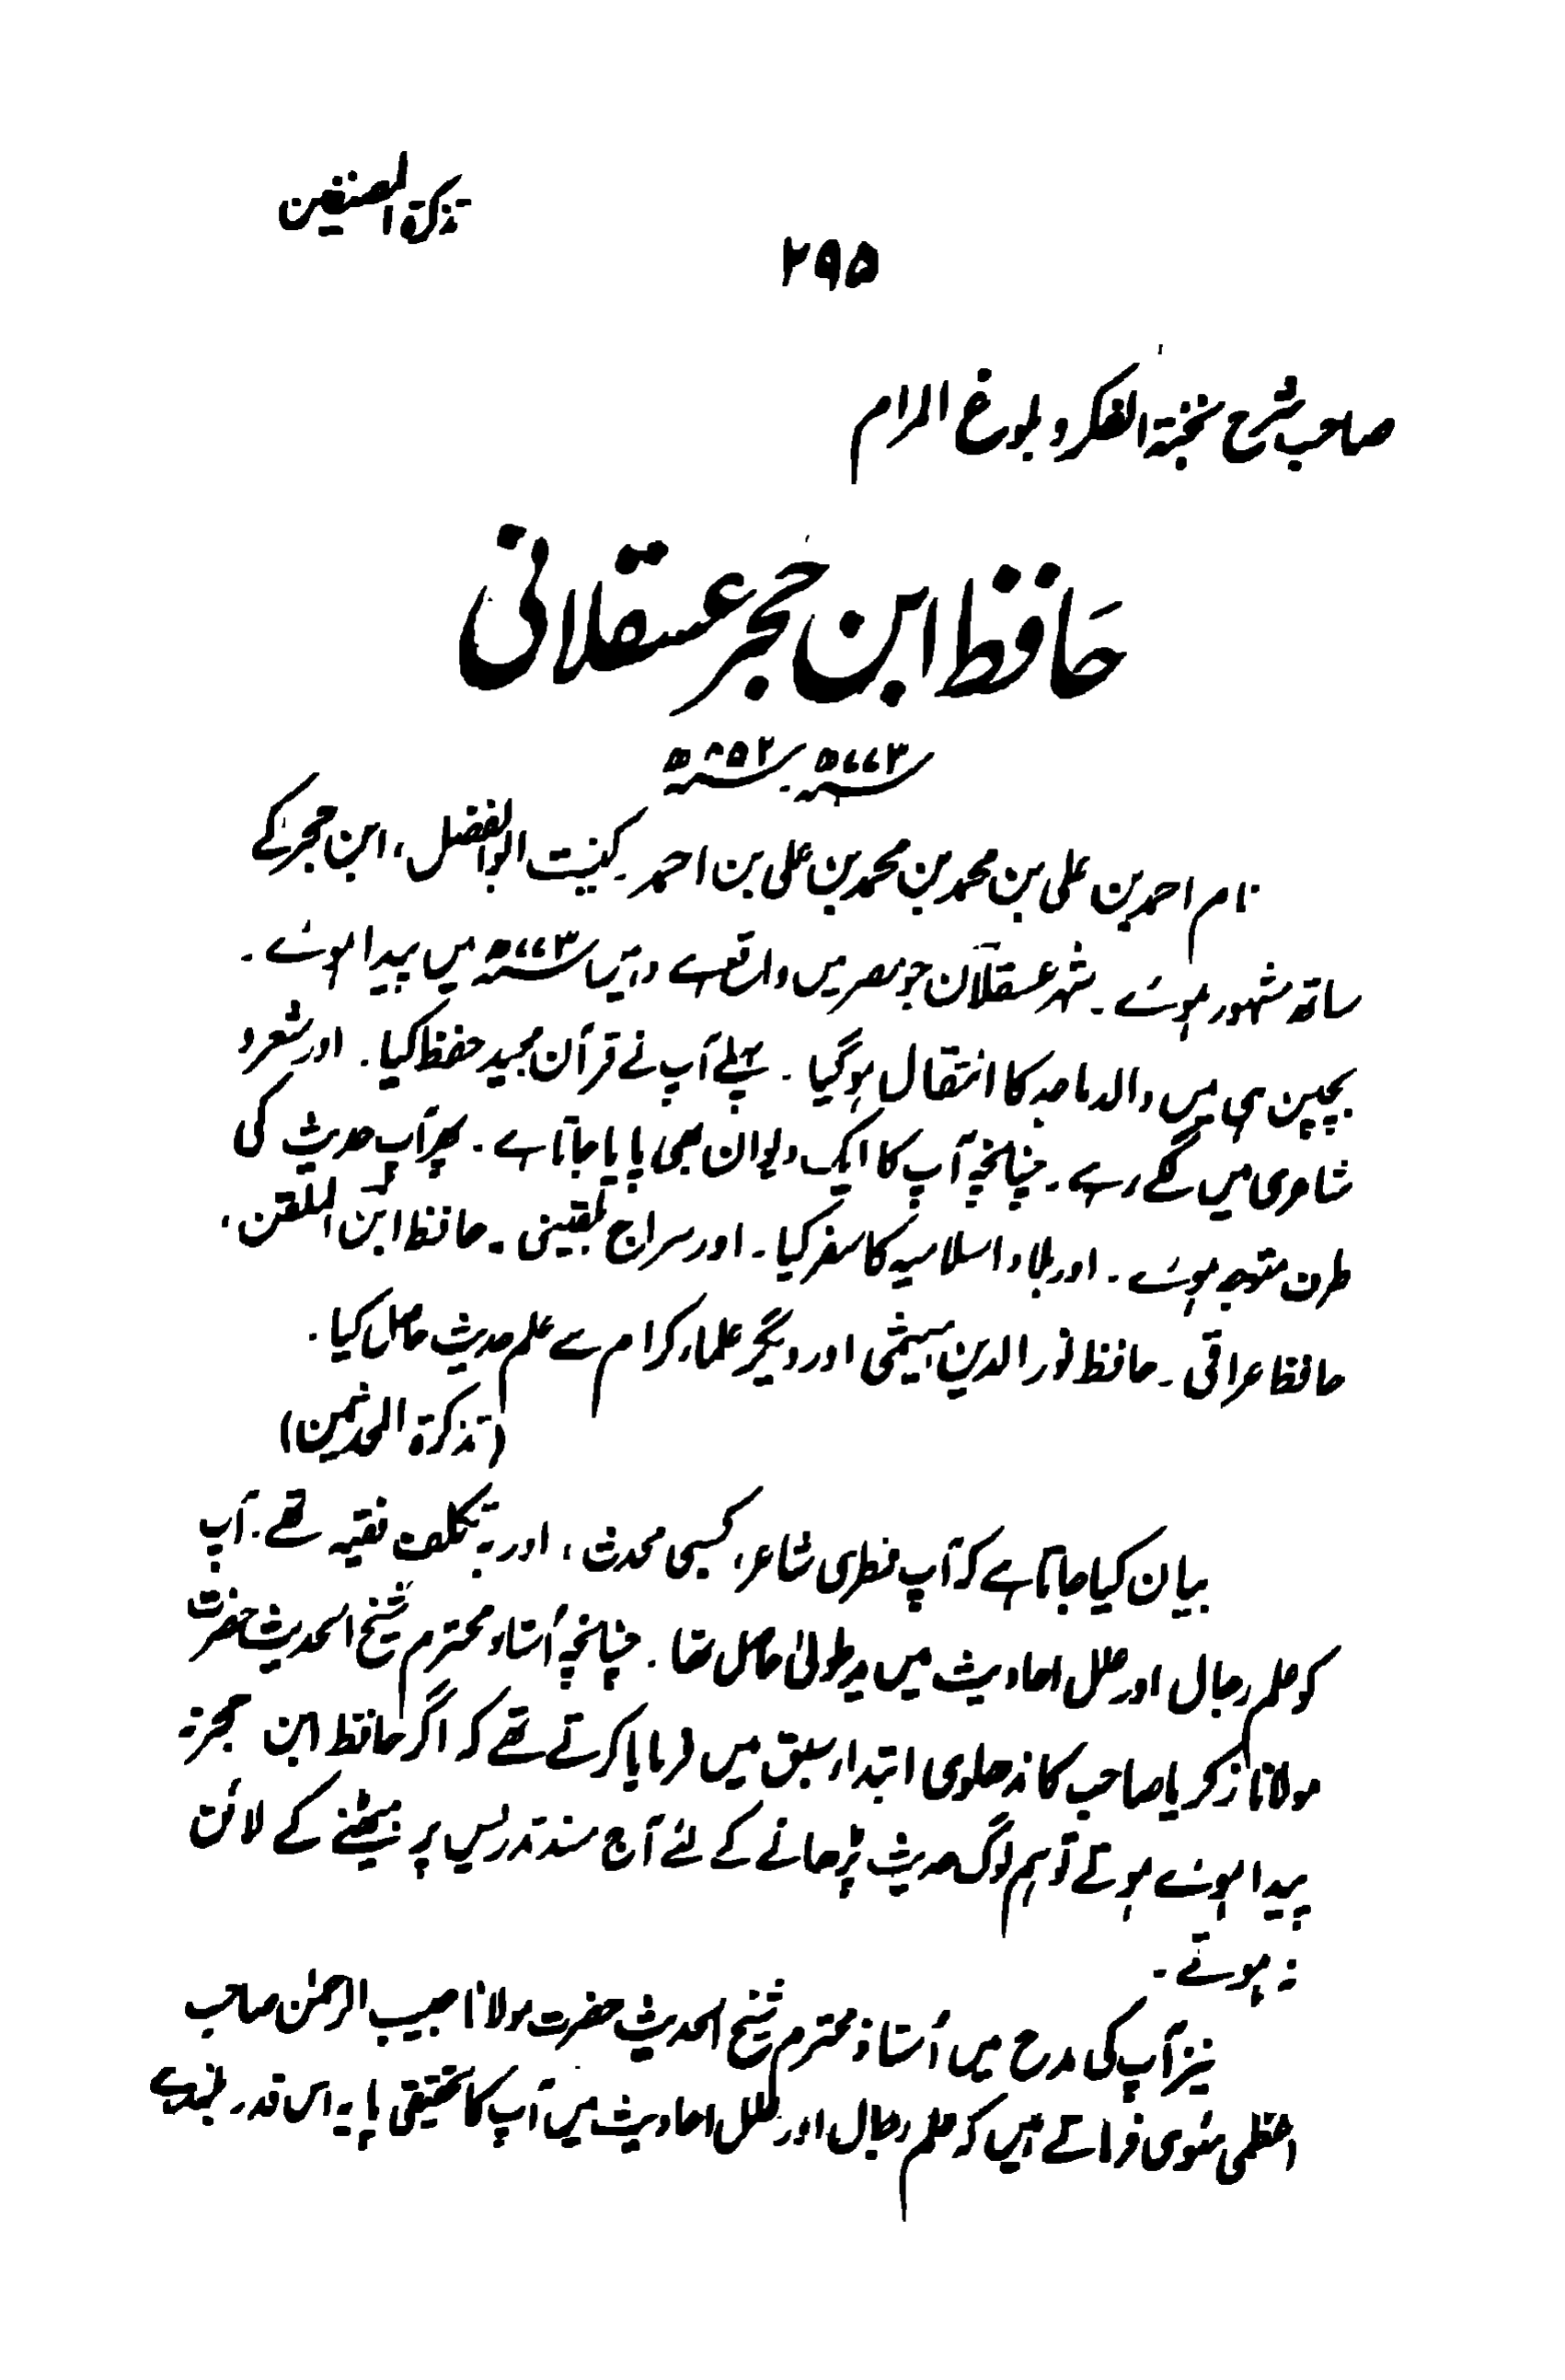 تذکرۃ المصنفین
۲۹۵
صاحب شرح نخبۃ الفکر و بلوغ المرام
حافظ ابن حجر عسقلانی
۷۷۳ھ ـ ۸۵۲ھ
نام احمد بن علی بن محمد بن محمد بن علی بن احمد ۔ کنیت ابوالفضل ، ابن حجر کے
ساتھ مشہور ہوئے ۔ شہر عسقلان جو مصر میں واقع ہے وہیں ۷۷۳ھ میں پیدا ہوئے ۔
بچپن ہی میں والد ماجد کا انتقال ہوگیا ۔ پہلے آپ نے قرآن مجید حفظ کیا ۔ اور شعر و
شاعری میں لگے رہے ۔ چنانچہ آپ کا ایک دیوان بھی پایا جاتا ہے ۔ پھر آپ حدیث کی
طرف متوجہ ہوئے ۔ اور بلاد اسلامیہ کا سفر کیا ۔ اور سراج بلقینی ۔ حافظ ابن الملقن ،
حافظ عراقی ۔ حافظ نور الدین ہیثمی اور دیگر علماء کرام سے علم حدیث حاصل کیا ۔
(تذکرۃ المحدثین)
بیان کیا جاتا ہے کہ آپ فطری شاعر ، کسبی محدث ، اور بہ تکلف فقیہ تھے ۔ آپ
کو علم رجال اور علل احادیث میں ید طولیٰ حاصل تھا ۔ چنانچہ اُستاد محترم شیخ الحدیث حضرت
مولانا زکریا صاحب کاندھلوی ابتداء سبق میں فرمایا کرتے تھے کہ اگر حافظ ابن حجر نہ
پیدا ہوئے ہوتے تو ہم لوگ حدیث پڑھانے کے لئے آج مسند تدریس پر بیٹھنے کے لائق
نہ ہوتے ۔
نیز آپ کی مدح میں اُستاذ محترم شیخ الحدیث حضرت مولانا حبیب الرحمٰن صاحب
اعظمی مئوی فرماتے ہیں کہ علم رجال اور علل احادیث میں آپ کا تحقیقی پایہ اس قدر بلند ہے